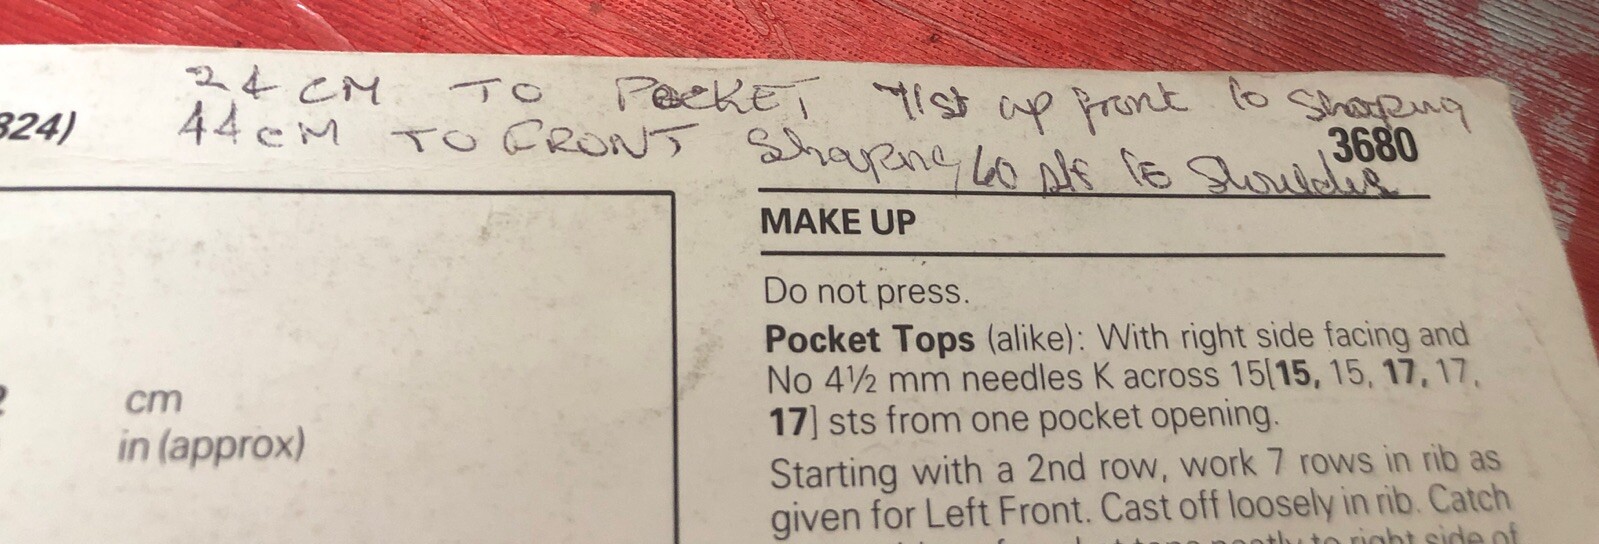 24 CM TO POCKET 71st up front to Shaping
324)
44 CM TO FRONT Shaping 60 sts to Shoulder
3680
MAKE UP
Do not press.
Pocket Tops (alike): With right side facing and
No 4½ mm needles K across 15[15, 15, 17, 17,
17] sts from one pocket opening.
Starting with a 2nd row, work 7 rows in rib as
given for Left Front. Cast off loosely in rib. Catch
to right side of
cm
in (approx)